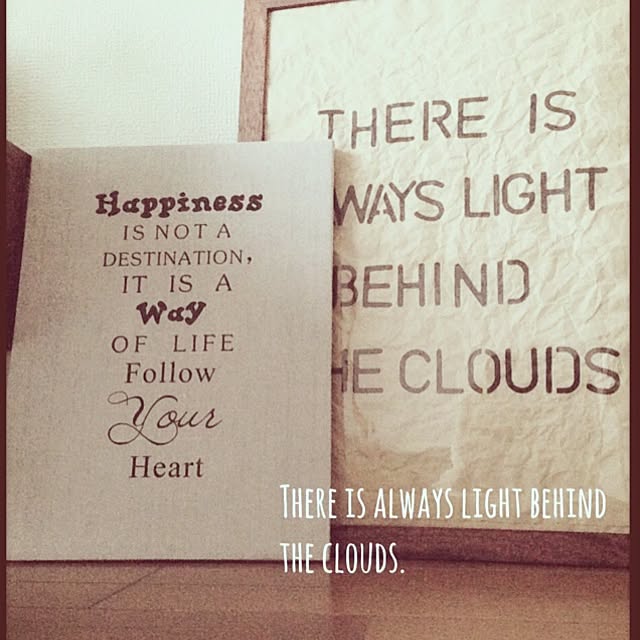 Happiness
IS NOT A
DESTINATION,
IT IS A
Way
OF LIFE
Follow
Your
Heart
THERE IS
WAYS LIGHT
BEHIND
HE CLOUDS
THERE IS ALWAYS LIGHT BEHIND
THE CLOUDS.